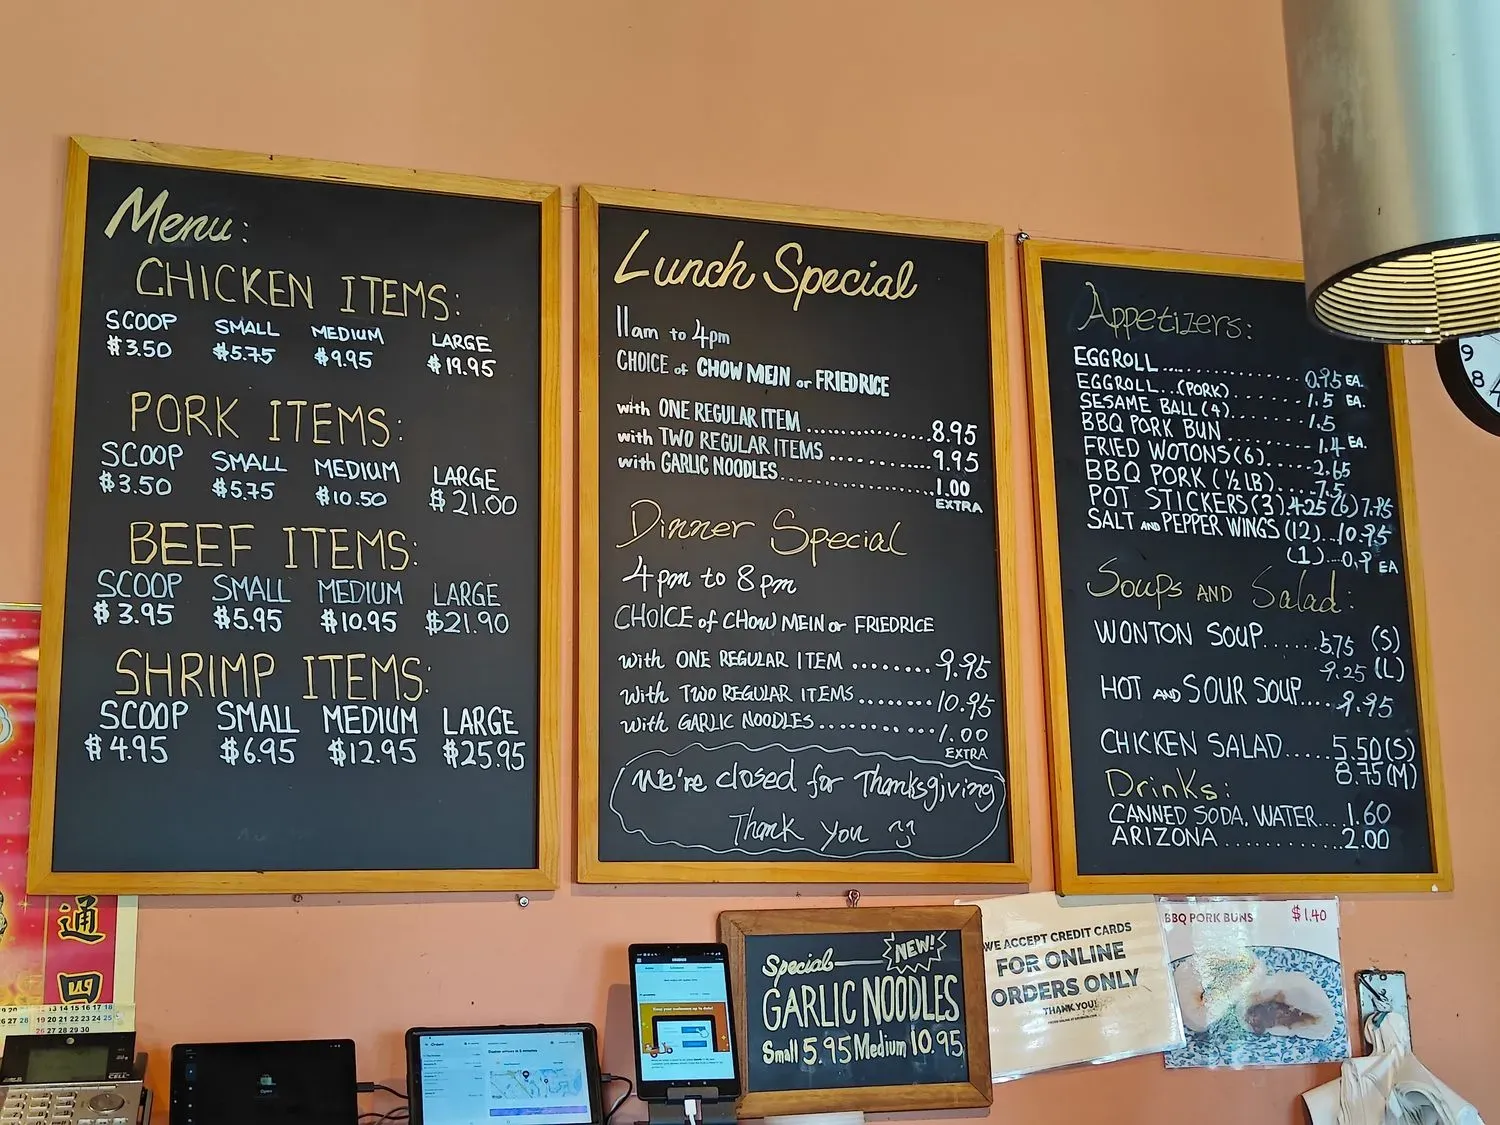 Menu:
CHICKEN ITEMS:
SCOOP SMALL MEDIUM LARGE
$3.50 $5.75 $9.95 $19.95
PORK ITEMS:
SCOOP SMALL MEDIUM LARGE
$3.50 $5.75 $10.50 $21.00
BEEF ITEMS:
SCOOP SMALL MEDIUM LARGE
$3.95 $5.95 $10.95 $21.90
SHRIMP ITEMS:
SCOOP SMALL MEDIUM LARGE
$4.95 $6.95 $12.95 $25.95
Lunch Special
11am to 4pm
CHOICE of CHOW MEIN or FRIED RICE
with ONE REGULAR ITEM ..............8.95
with TWO REGULAR ITEMS ...........9.95
with GARLIC NOODLES.................1.00
EXTRA
Dinner Special
4pm to 8pm
CHOICE of CHOW MEIN or FRIEDRICE
with ONE REGULAR ITEM ........9.95
with TWO REGULAR ITEMS ........10.95
with GARLIC NOODLES ...........1.00
EXTRA
We're closed for Thanksgiving
Thank you
Appetizers:
EGGROLL ................. 0.95 EA.
EGGROLL...(PORK)......... 1.5 EA.
SESAME BALL (4)......... 1.5
BBQ PORK BUN ......... 1.4 EA.
FRIED WOTONS (6)...... 2.65
BBQ PORK (1/2 LB)..... 7.5
POT STICKERS (3) 4.25 (6) 7.95
SALT AND PEPPER WINGS (12)...10.95
(1).....0.9 EA
Soups AND Salad:
WONTON SOUP......5.75 (S)
9.25 (L)
HOT AND SOUR SOUP....9.95
CHICKEN SALAD.....5.50(S)
8.75(M)
Drinks:
CANNED SODA, WATER....1.60
ARIZONA ............2.00
通
四
Special NEW!
GARLIC NOODLES
Small 5.95 Medium 10.95
WE ACCEPT CREDIT CARDS
FOR ONLINE
ORDERS ONLY
THANK YOU!
BBQ PORK BUNS $1.40
13 14 15 16 17 18
26 27 28 29 30
9
8